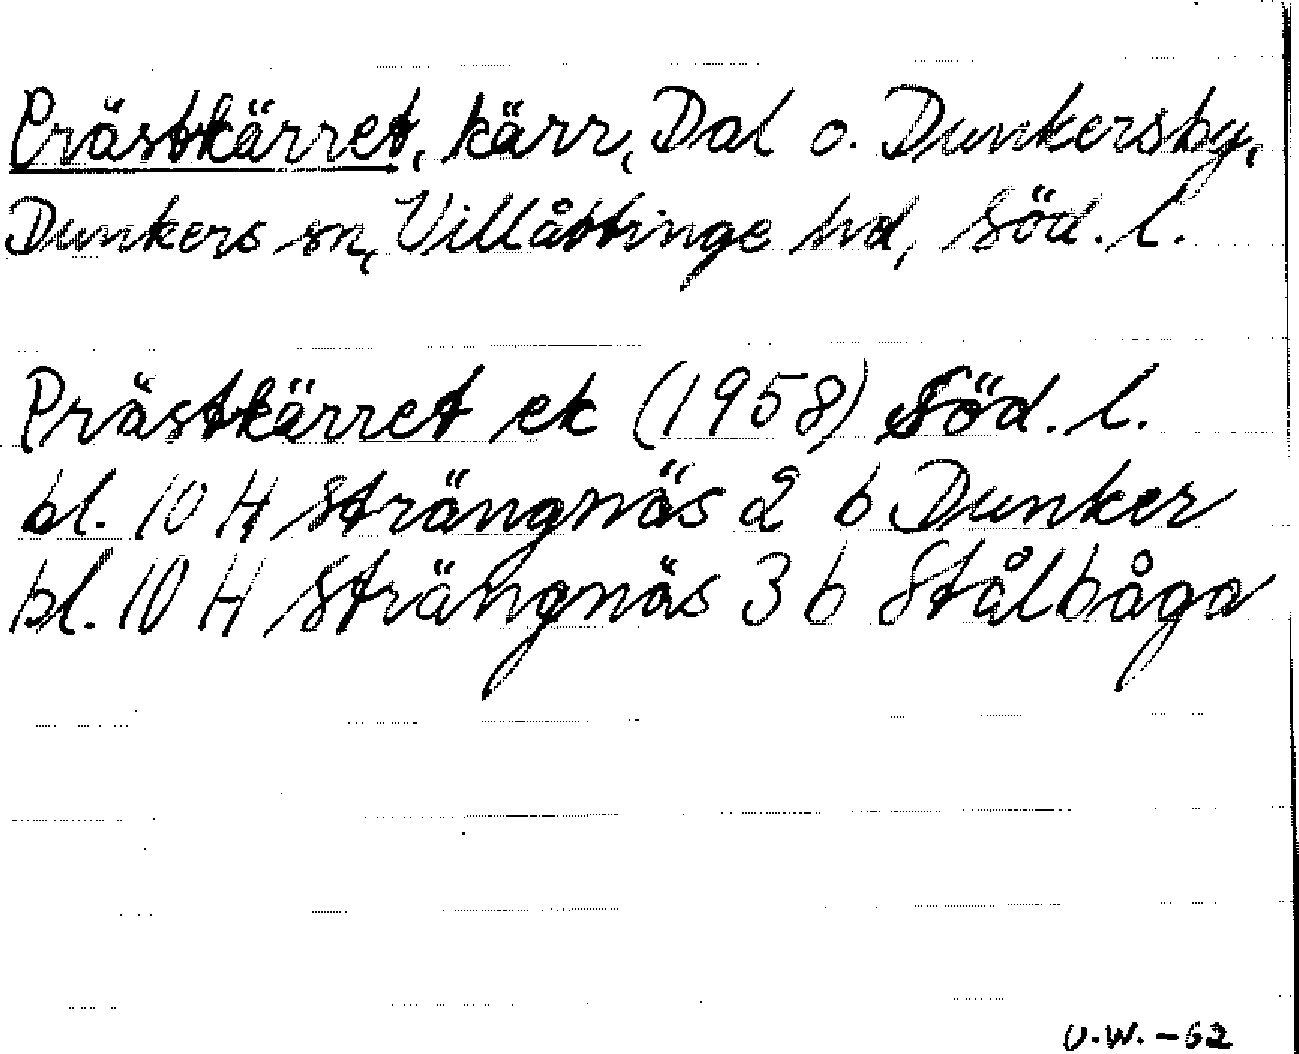 Prästkärret, kärr, Dal o. Dunkersby,
Dunkers sn, Villåttinge hd, Söd. l.
Prästkärret ek (1958) Söd. l.
bl. 10 H Strängnäs 2 b Dunker
bl. 10 H Strängnäs 3 b Stålbåga
U.W. -62